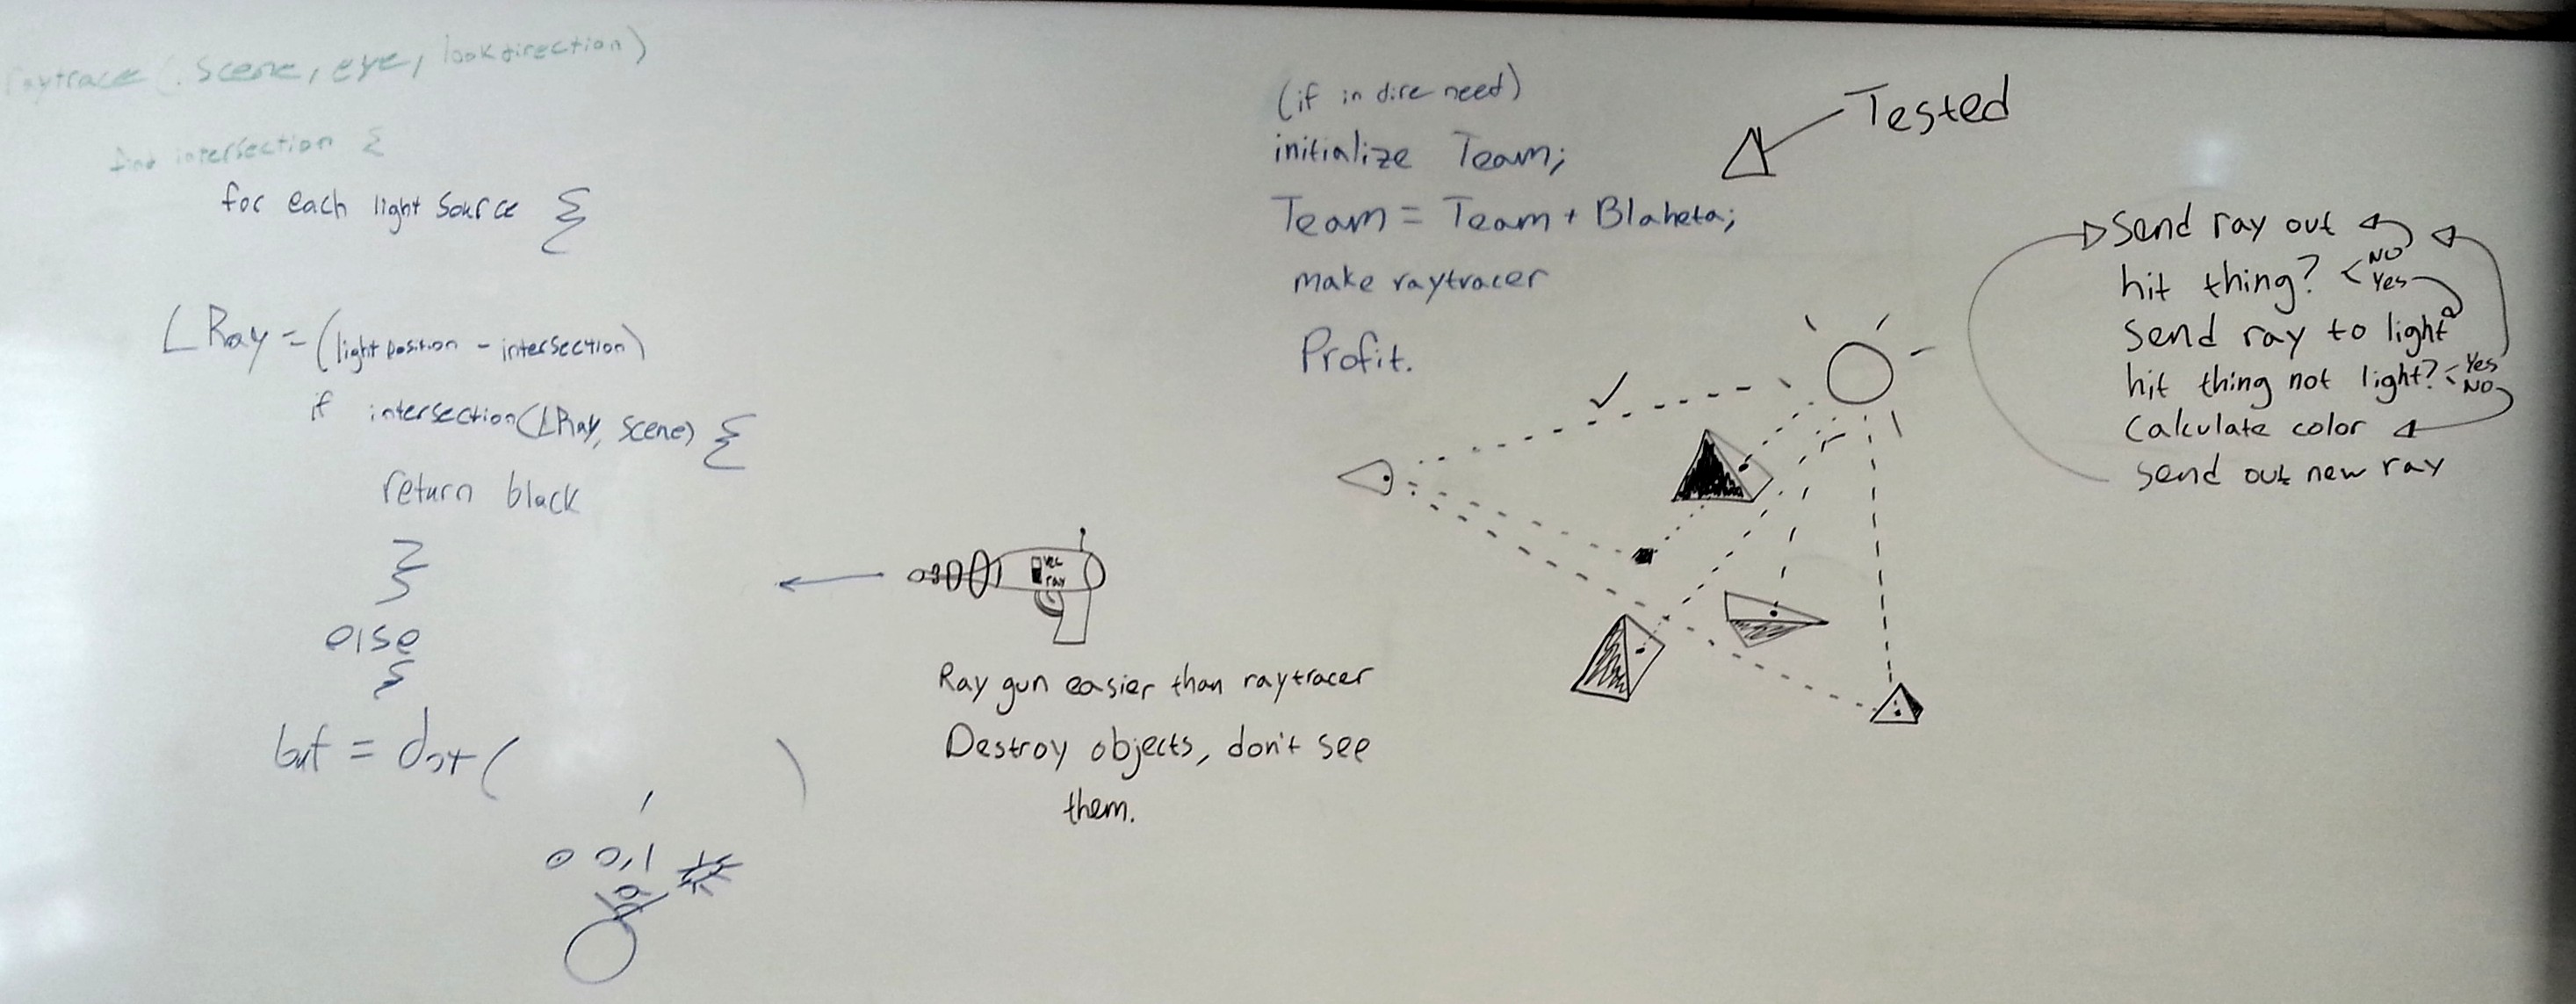 raytrace(scene, eye, lookdirection)
find intersection {
for each light source {
LRay = (lightposition - intersection)
if intersection(LRay, scene) {
return black
}
}
else
{
= dot( )
0 0,1
vec
ray
Ray gun easier than raytracer
Destroy objects, don't see
them.
(if in dire need)
initialize Team;
Team = Team + Blaheta;
make raytracer
Profit.
Tested
Send ray out
hit thing? < NO
Yes
Send ray to light
hit thing not light? < Yes
NO
Calculate color
Send out new ray